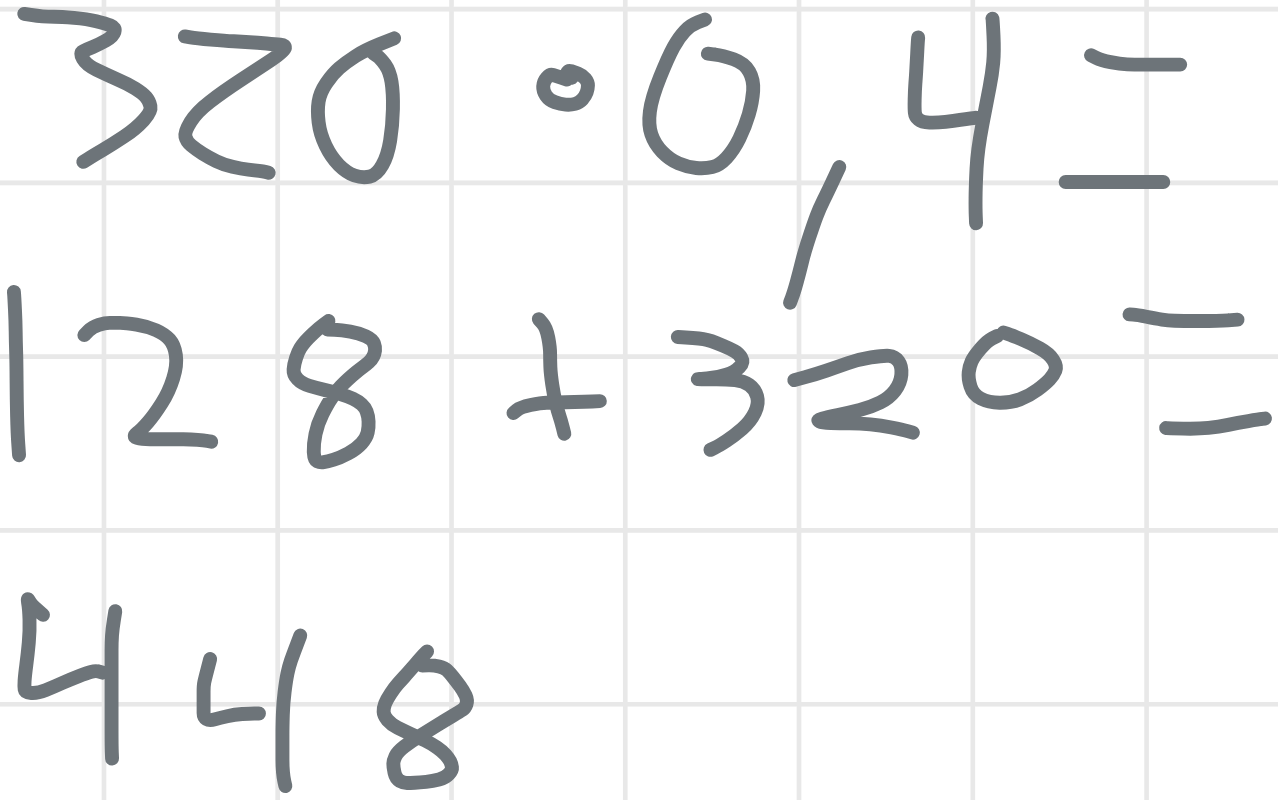 320 · 0,4 =
128 + 320 =
448